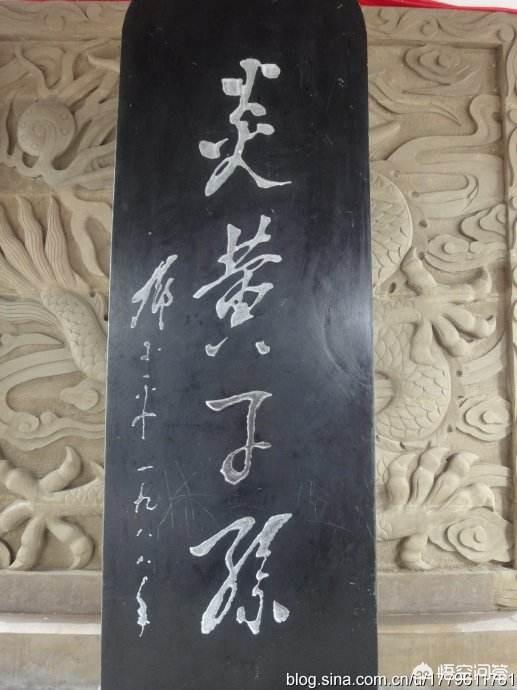 炎黄子孫
邓小平 一九八八年
悟空问答
blog.sina.com.cn/u/1779611761